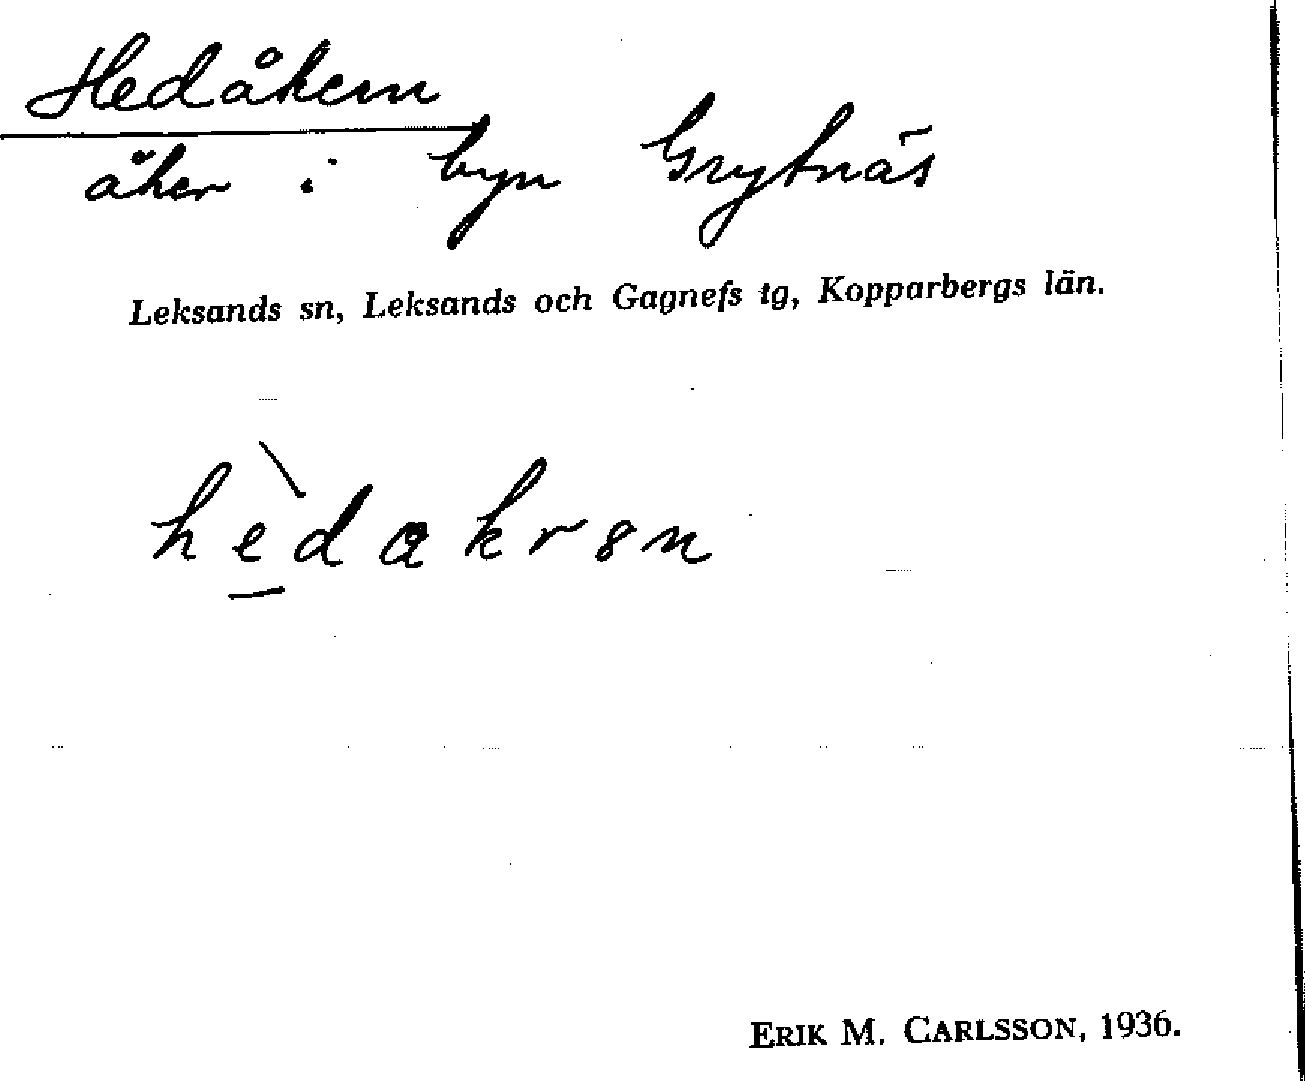 Hedåkern
åker i byn Grytnäs
Leksands sn, Leksands och Gagnefs tg, Kopparbergs län.
hèdakrən
ERIK M. CARLSSON, 1936.